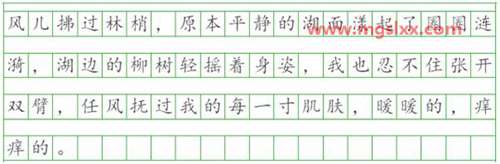 风儿拂过林梢，原本平静的湖面漾起了圈圈涟
漪，湖边的柳树轻摇着身姿，我也忍不住张开
双臂，任风抚过我的每一寸肌肤，暖暖的，痒
痒的。
www.mgslxx.com